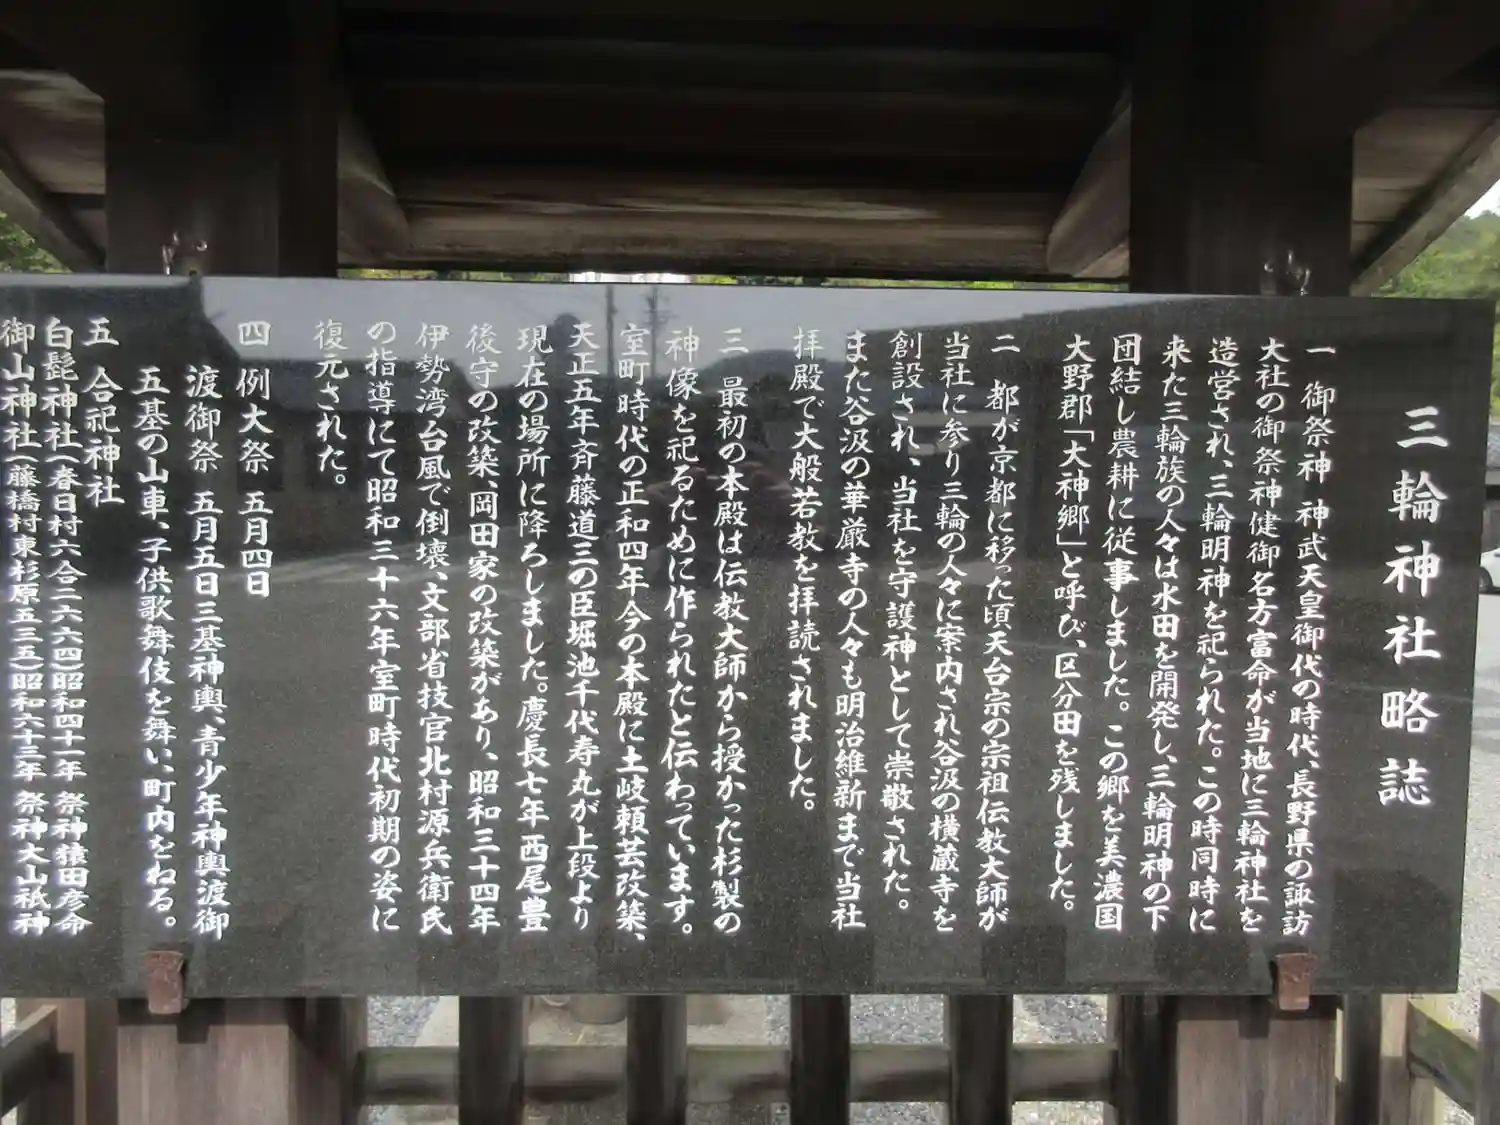 三輪神社略誌
一 御祭神 神武天皇御代の時代、長野県の諏訪
大社の御祭神健御名方富命が当地に三輪神社を
造営され、三輪明神を祀られた。この時同時に
来た三輪族の人々は水田を開発し、三輪明神の下
団結し農耕に従事しました。この郷を美濃国
大野郡「大神郷」と呼び、区分田を残しました。
二 都が京都に移った頃天台宗の宗祖伝教大師が
当社に参り三輪の人々に案内され谷汲の横蔵寺を
創設され、当社を守護神として崇敬された。
また谷汲の華厳寺の人々も明治維新まで当社
拝殿で大般若教を拝読されました。
三 最初の本殿は伝教大師から授かった杉製の
神像を祀るために作られたと伝わっています。
室町時代の正和四年今の本殿に土岐頼芸改築、
天正五年斉藤道三の臣堀池千代寿丸が上段より
現在の場所に降ろしました。慶長七年西尾豊
後守の改築、岡田家の改築があり、昭和三十四年
伊勢湾台風で倒壊、文部省技官北村源兵衛氏
の指導にて昭和三十六年室町時代初期の姿に
復元された。
四 例大祭 五月四日
渡御祭 五月五日三基神輿、青少年神輿渡御
五基の山車、子供歌舞伎を舞い、町内をねる。
五 合祀神社
白髭神社(春日村六合二六六四)昭和四十一年 祭神猿田彦命
御山神社(藤橋村東杉原五三五)昭和六十三年 祭神大山祇神